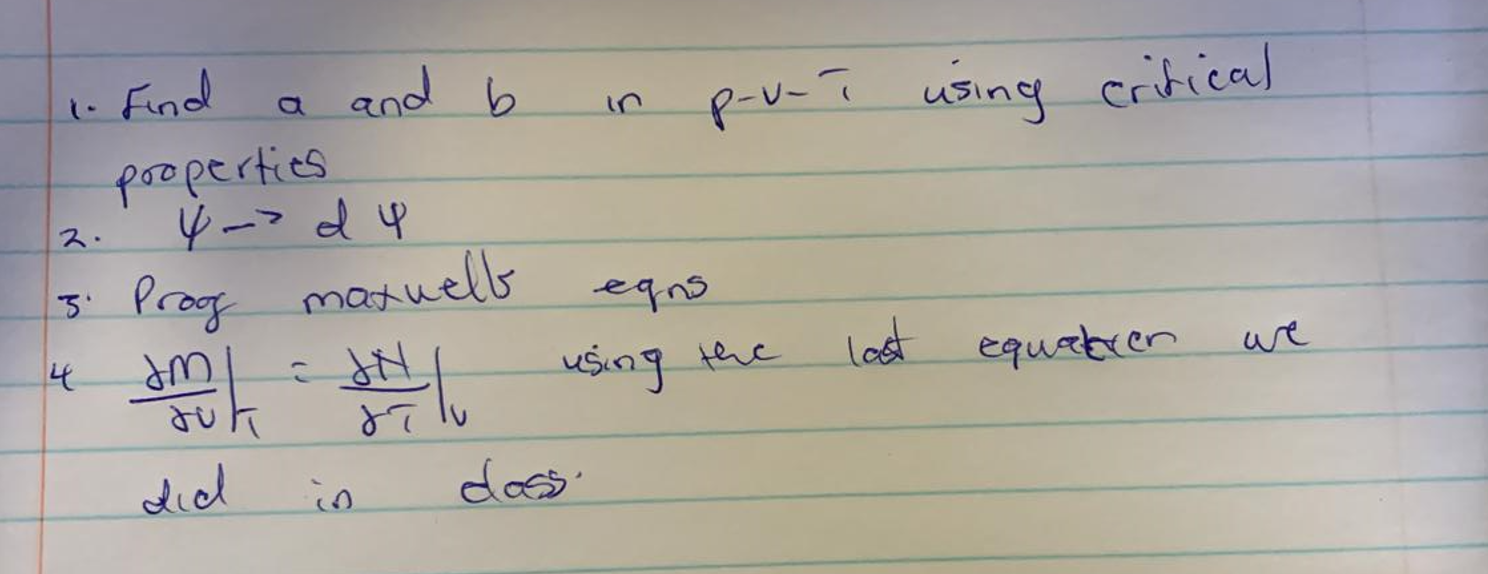 1. Find a and b in p-v-T using critical
properties
2. ψ -> d ψ
3. Proof maxwells eqns
4 ∂M/∂v|T = ∂N/∂T|v using the last equation we
did in class.